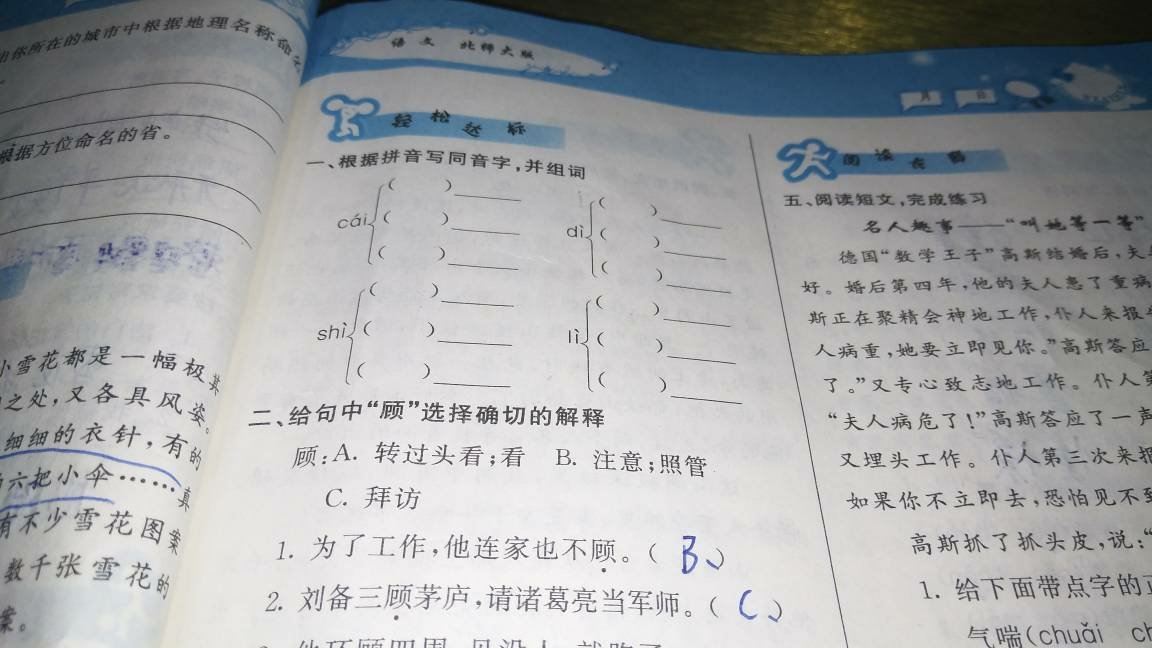 出你所在的城市中根据地理名称命
根据方位命名的省。
小雪花都是一幅极其
之处,又各具风姿。
细细的衣针,有的
六把小伞……真
有不少雪花图案
数千张雪花的
案。
语文 北师大版
轻松达标
一、根据拼音写同音字,并组词
cái ( )
( )
( )
dì ( )
( )
( )
shì ( )
( )
( )
lì ( )
( )
( )
二、给句中“顾”选择确切的解释
顾:A. 转过头看;看 B. 注意;照管
C. 拜访
1. 为了工作,他连家也不顾。( B、)
2. 刘备三顾茅庐,请诸葛亮当军师。( C、)
月 日
阅读
五、阅读短文,完成练习
名人趣事——“叫她等一等”
德国“数学王子”高斯结婚后,夫
好。婚后第四年,他的夫人患了重病
斯正在聚精会神地工作,仆人来报
人病重,她要立即见你。”高斯答应
了。”又专心致志地工作。仆人第
“夫人病危了!”高斯答应了一声
又埋头工作。仆人第三次来报
如果你不立即去,恐怕见不到
高斯抓了抓头皮,说:“
1. 给下面带点字的正
气喘(chuǎi ch